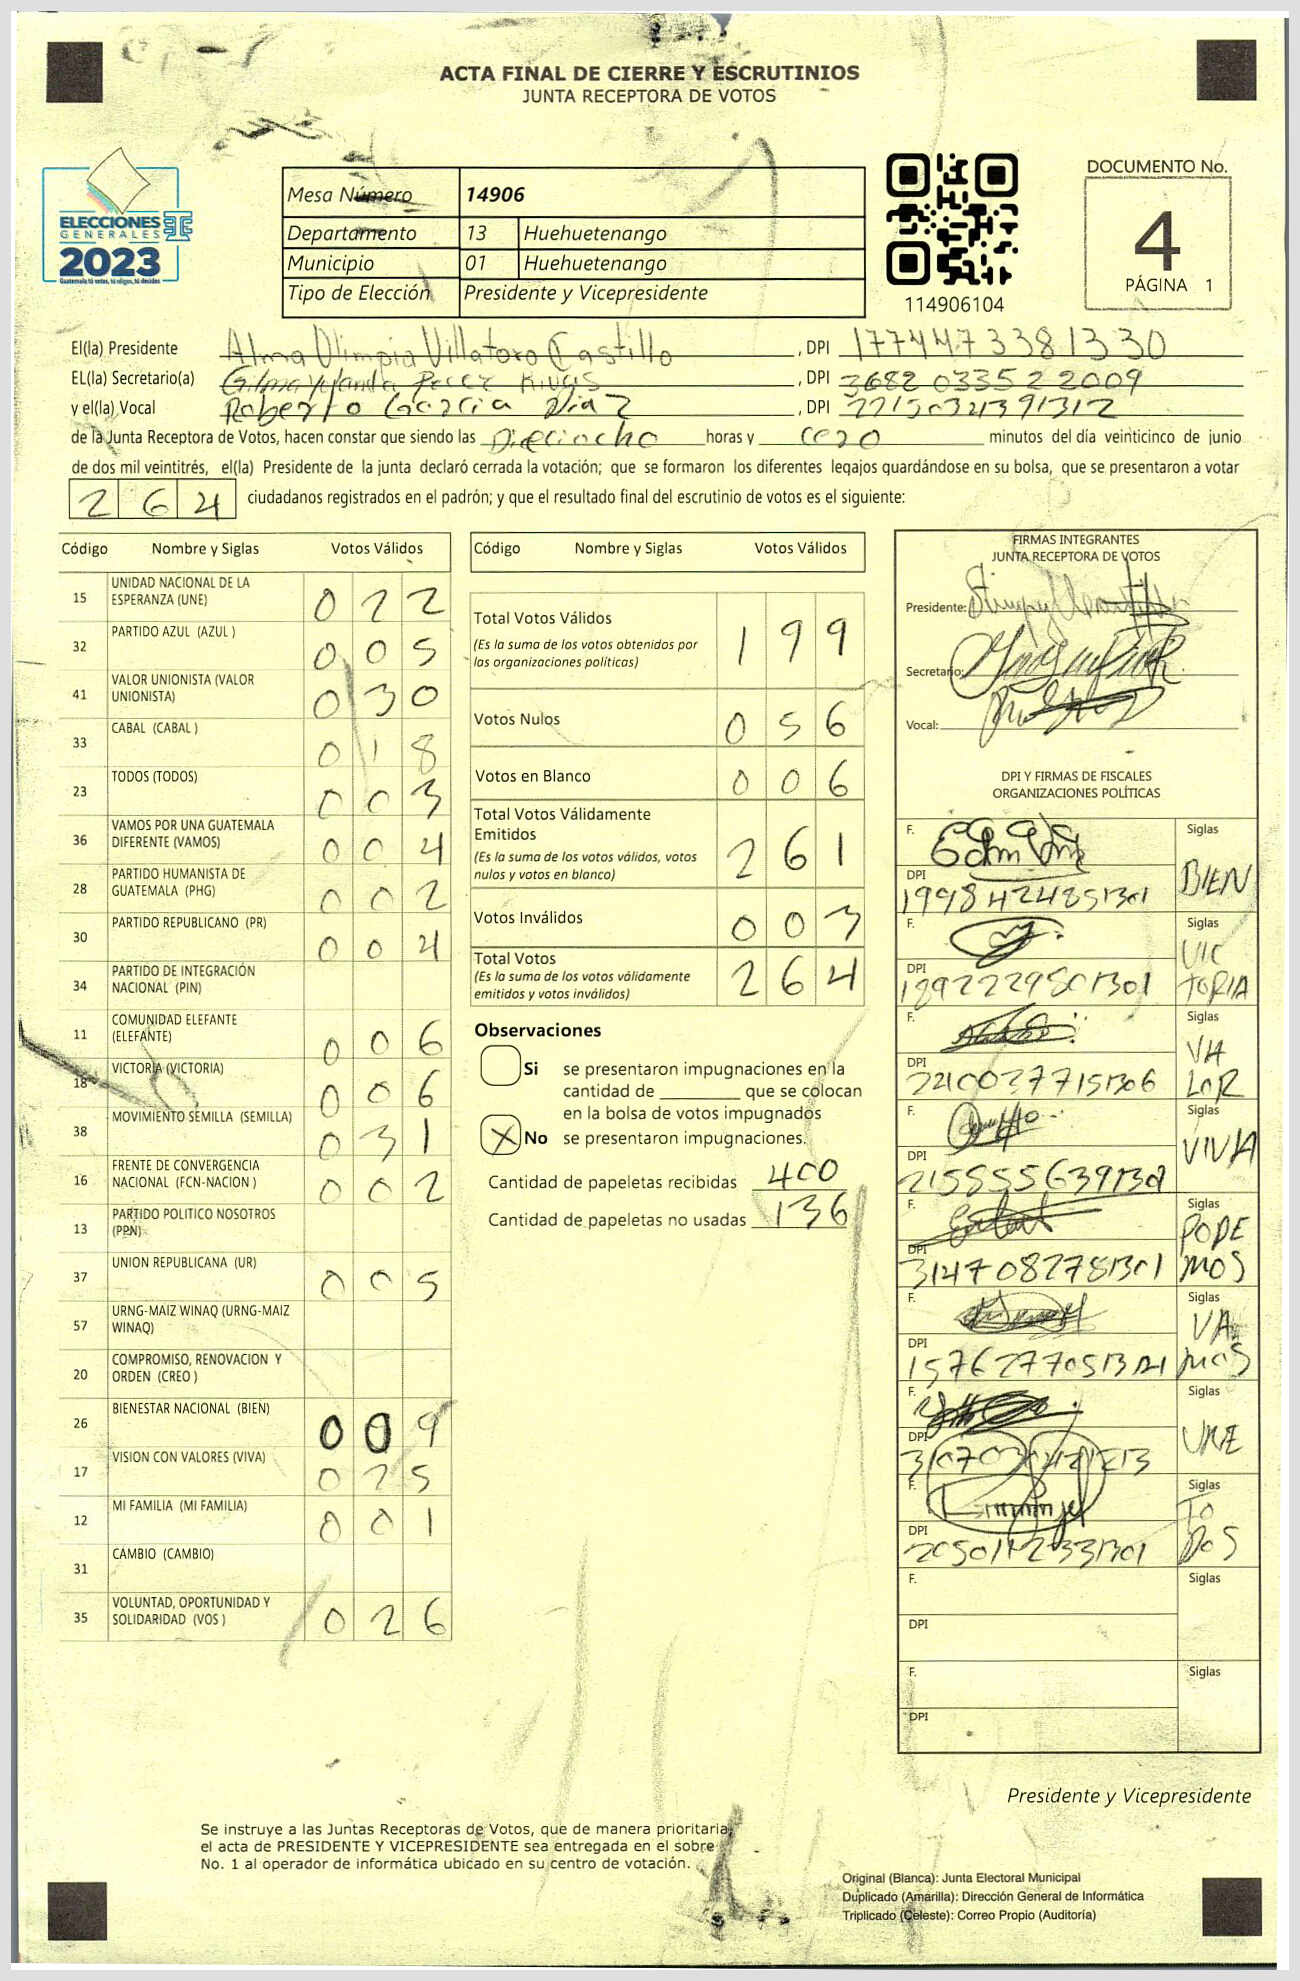 ACTA FINAL DE CIERRE Y ESCRUTINIOS
JUNTA RECEPTORA DE VOTOS
ELECCIONES
GENERALES
2023
Guatemala tú votas, tú eliges, tú decides
Mesa Número 14906
Departamento 13 Huehuetenango
Municipio 01 Huehuetenango
Tipo de Elección Presidente y Vicepresidente
114906104
DOCUMENTO No.
4
PÁGINA 1
El(la) Presidente Alma Olimpia Villatoro Castillo, DPI 1774473381330
EL(la) Secretario(a) Gilma Yolanda Perez Rivas, DPI 3682033522009
y el(la) Vocal Roberto Garcia Diaz, DPI
de la Junta Receptora de Votos, hacen constar que siendo las Dieciocho horas y cero minutos del día veinticinco de junio
de dos mil veintitrés, el(la) Presidente de la junta declaró cerrada la votación; que se formaron los diferentes legajos guardándose en su bolsa, que se presentaron a votar
264 ciudadanos registrados en el padrón; y que el resultado final del escrutinio de votos es el siguiente:
Código Nombre y Siglas Votos Válidos
15 UNIDAD NACIONAL DE LA ESPERANZA (UNE) 022
32 PARTIDO AZUL (AZUL ) 005
41 VALOR UNIONISTA (VALOR UNIONISTA) 030
33 CABAL (CABAL ) 018
23 TODOS (TODOS) 003
36 VAMOS POR UNA GUATEMALA DIFERENTE (VAMOS) 004
28 PARTIDO HUMANISTA DE GUATEMALA (PHG) 002
30 PARTIDO REPUBLICANO (PR) 004
34 PARTIDO DE INTEGRACIÓN NACIONAL (PIN)
11 COMUNIDAD ELEFANTE (ELEFANTE) 006
18 VICTORIA (VICTORIA) 006
38 MOVIMIENTO SEMILLA (SEMILLA) 031
16 FRENTE DE CONVERGENCIA NACIONAL (FCN-NACION ) 002
13 PARTIDO POLITICO NOSOTROS (PPN)
37 UNION REPUBLICANA (UR) 005
57 URNG-MAIZ WINAQ (URNG-MAIZ WINAQ)
20 COMPROMISO, RENOVACION Y ORDEN (CREO )
26 BIENESTAR NACIONAL (BIEN) 009
17 VISION CON VALORES (VIVA) 025
12 MI FAMILIA (MI FAMILIA) 001
31 CAMBIO (CAMBIO)
35 VOLUNTAD, OPORTUNIDAD Y SOLIDARIDAD (VOS ) 026
Código Nombre y Siglas Votos Válidos
Total Votos Válidos 199
(Es la suma de los votos obtenidos por
las organizaciones políticas)
Votos Nulos 056
Votos en Blanco 006
Total Votos Válidamente
Emitidos 261
(Es la suma de los votos válidos, votos
nulos y votos en blanco)
Votos Inválidos 003
Total Votos 264
(Es la suma de los votos válidamente
emitidos y votos inválidos)
Observaciones
Si se presentaron impugnaciones en la
cantidad de ________ que se colocan
en la bolsa de votos impugnados
X No se presentaron impugnaciones.
Cantidad de papeletas recibidas 400
Cantidad de papeletas no usadas 136
FIRMAS INTEGRANTES
JUNTA RECEPTORA DE VOTOS
Presidente:
Secretario:
Vocal:
DPI Y FIRMAS DE FISCALES
ORGANIZACIONES POLÍTICAS
F. Siglas
DPI BIEN
F. Siglas
DPI VICTORIA
1892229801301
F. Siglas
DPI VALOR
22100277151306
F. Siglas
DPI VIVA
F. Siglas
DPI PODEMOS
3147082781301
F. Siglas
DPI VAMOS
F. Siglas
DPI UNE
F. Siglas
DPI TODOS
F. Siglas
DPI
F. Siglas
DPI
Presidente y Vicepresidente
Se instruye a las Juntas Receptoras de Votos, que de manera prioritaria,
el acta de PRESIDENTE Y VICEPRESIDENTE sea entregada en el sobre
No. 1 al operador de informática ubicado en su centro de votación.
Original (Blanca): Junta Electoral Municipal
Duplicado (Amarilla): Dirección General de Informática
Triplicado (Celeste): Correo Propio (Auditoría)